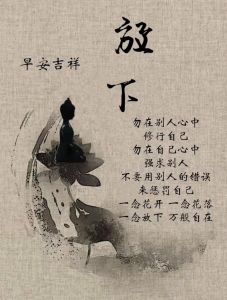 放下
早安吉祥
勿在别人心中
修行自己
勿在自己心中
强求别人
不要用别人的错误
来惩罚自己
一念花开 一念花落
一念放下 万般自在